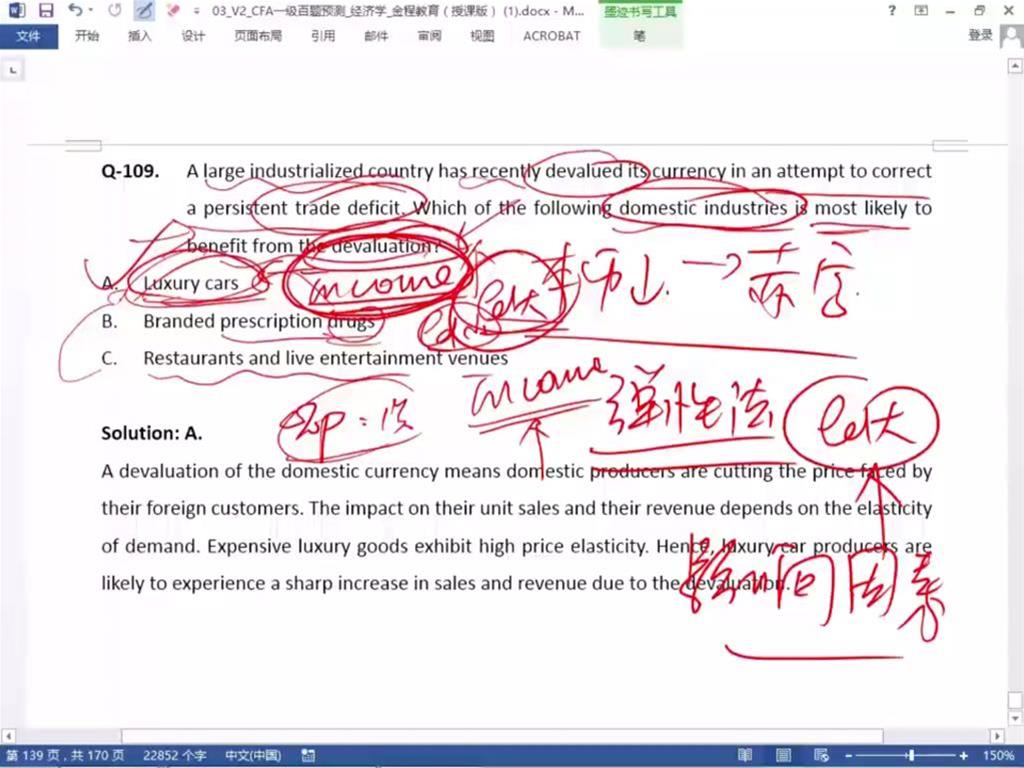 03_V2_CFA一级百题预测_经济学_金程教育（授课版）(1).docx - M...
墨迹书写工具
文件 开始 插入 设计 页面布局 引用 邮件 审阅 视图 ACROBAT 笔 登录
Q-109. A large industrialized country has recently devalued its currency in an attempt to correct
a persistent trade deficit. Which of the following domestic industries is most likely to
benefit from the devaluation?
A. Luxury cars
income
本币↓ →
B. Branded prescription drugs
C. Restaurants and live entertainment venues
income 弹性法
Solution: A.
A devaluation of the domestic currency means domestic producers are cutting the price faced by
their foreign customers. The impact on their unit sales and their revenue depends on the elasticity
of demand. Expensive luxury goods exhibit high price elasticity. Hence, luxury car producers are
likely to experience a sharp increase in sales and revenue due to the devaluation.
影响因素
第 139 页，共 170 页 22852 个字 中文(中国) 150%